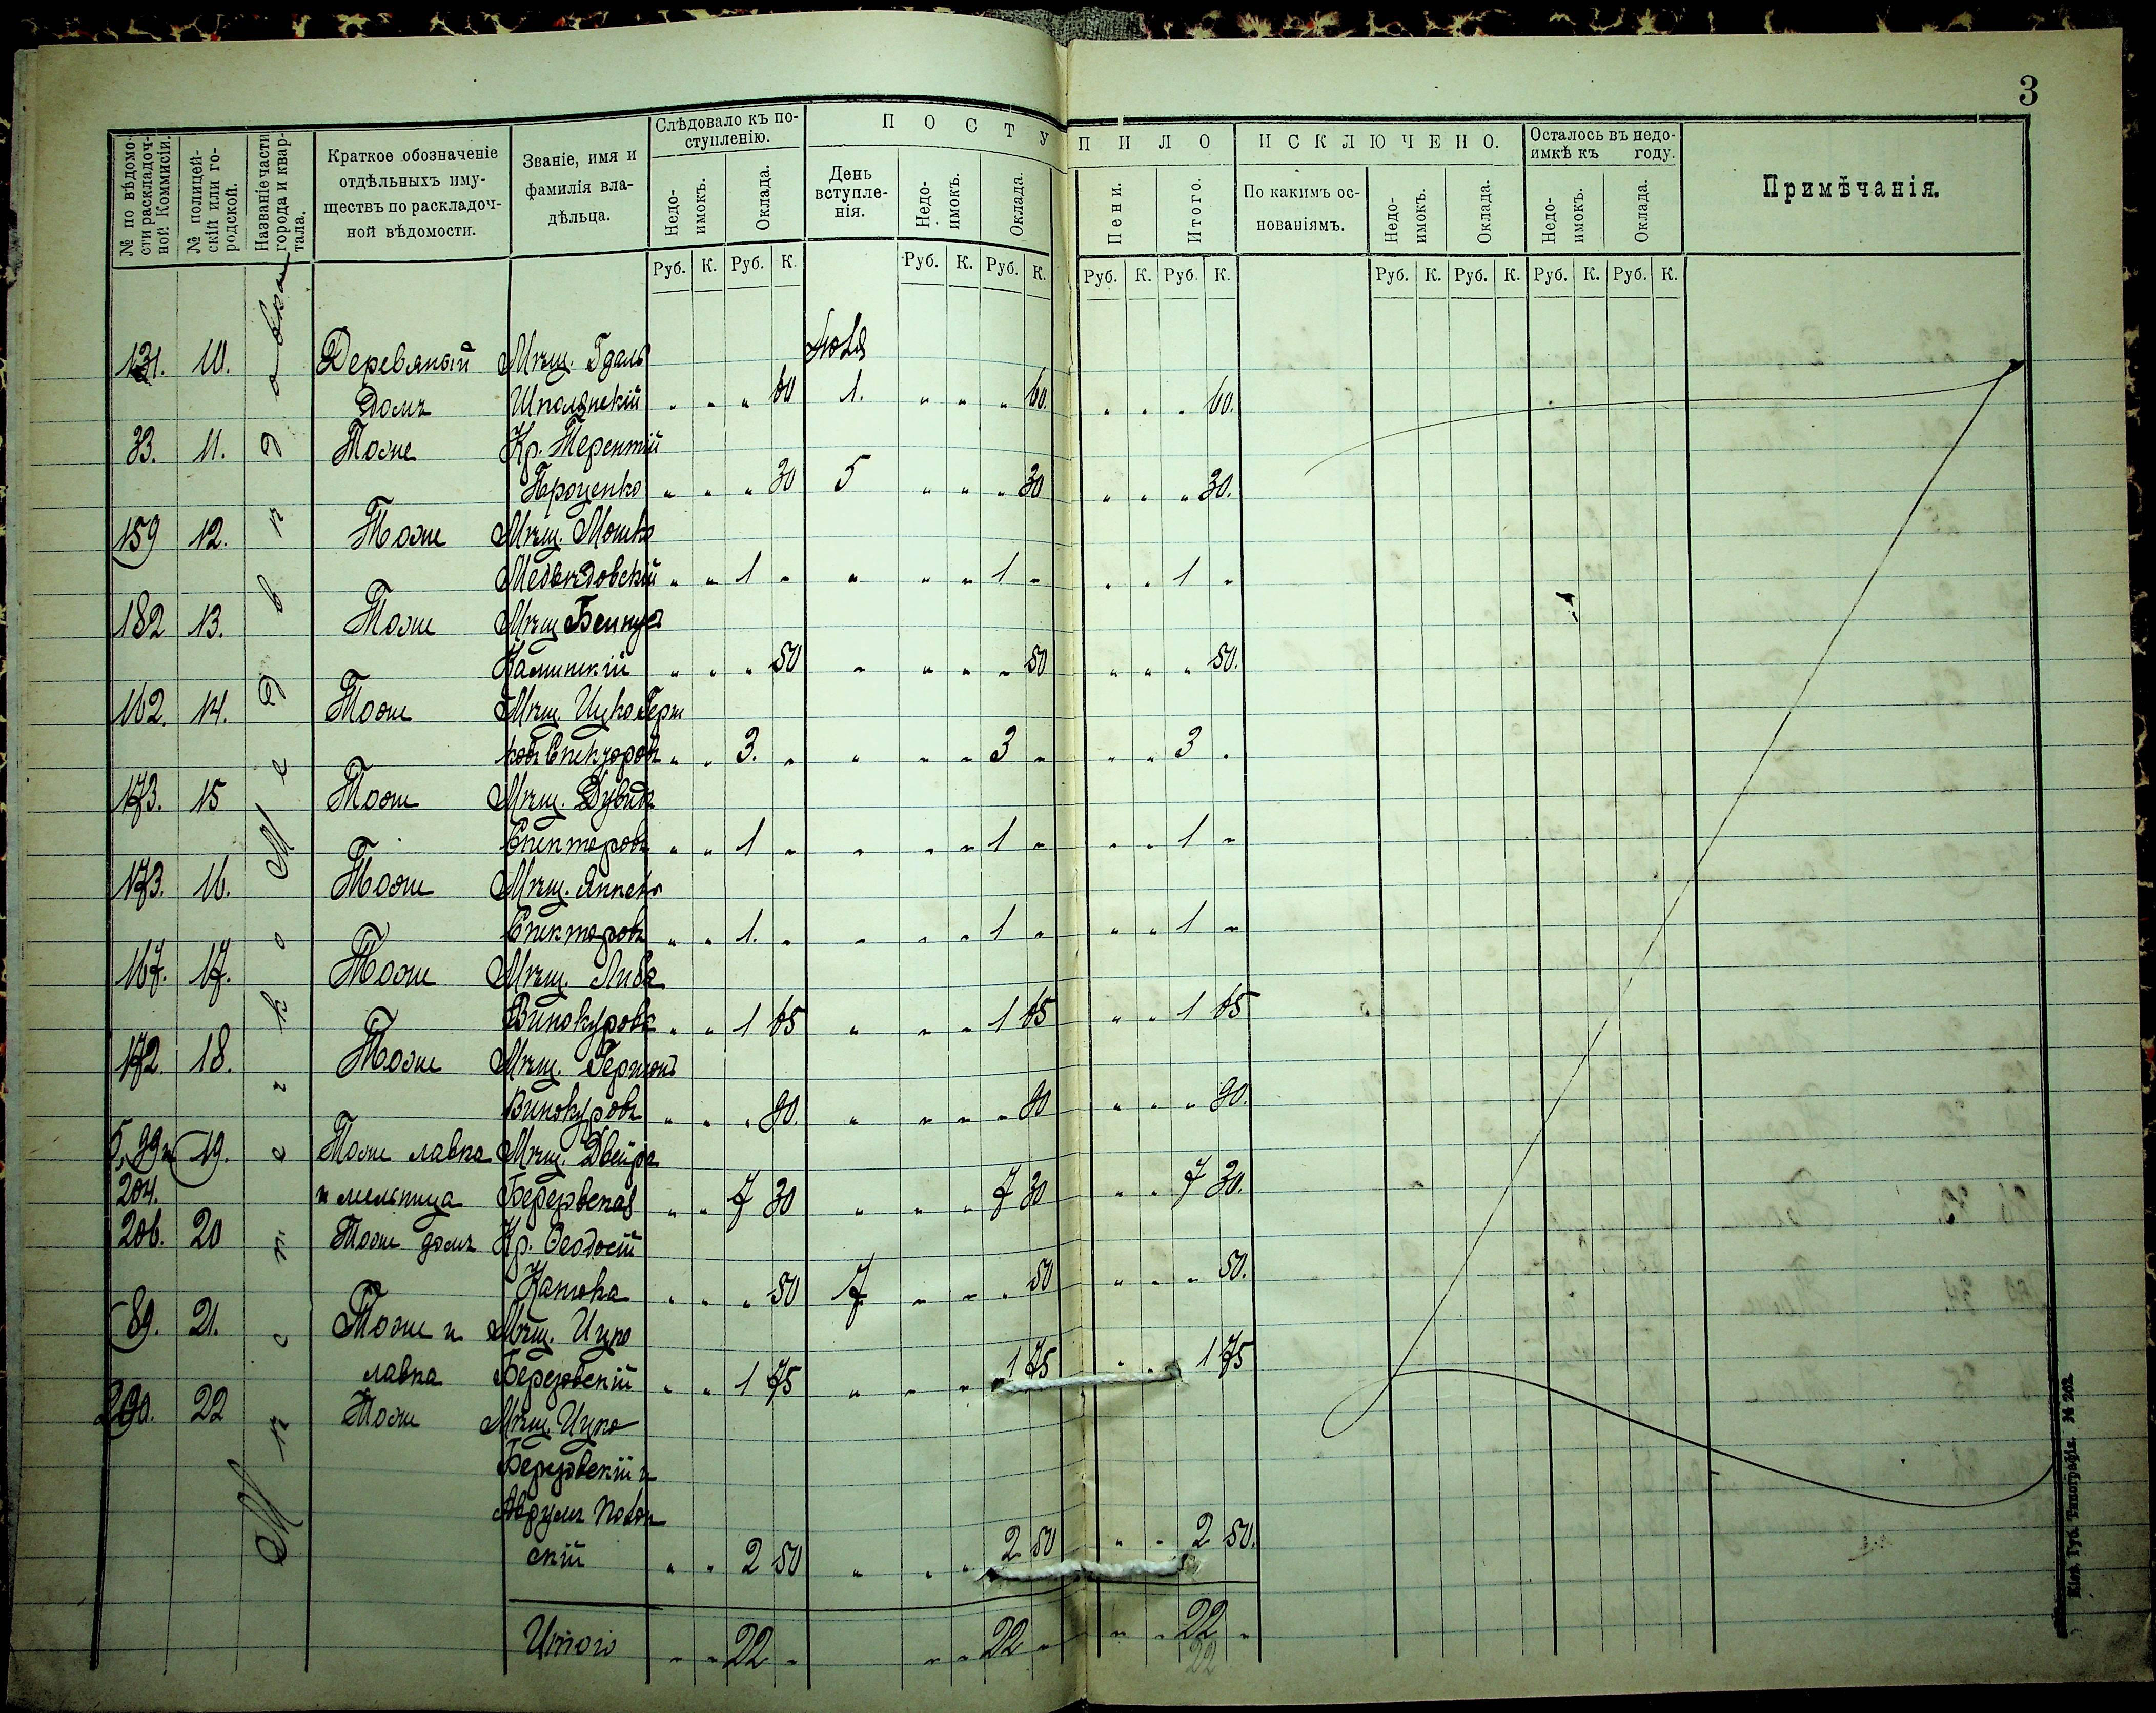 3
№ по вѣдомости раскладочной Коммисіи.
№ полицейскій или городской.
Названіе части города и квартала.
Краткое обозначеніе отдѣльныхъ имуществъ по раскладочной вѣдомости.
Званіе, имя и фамилія владѣльца.
Слѣдовало къ поступленію.
Недоимокъ. Оклада.
ПОСТУПИЛО
День вступленія. Недоимокъ. Оклада. Пени. Итого.
ИСКЛЮЧЕНО.
По какимъ основаніямъ. Недоимокъ. Оклада.
Осталось въ недоимкѣ къ году.
Недоимокъ. Оклада.
Примѣчанія.
Руб. К. Руб. К. Руб. К. Руб. К. Руб. К. Руб. К. Руб. К. Руб. К. Руб. К. Руб. К.
Мѣстечко Медвѣдовка
131. 10. Деревяный Мѣщ. Гдаль Іюля
Домъ Шполянскій " " " 60 1. " " " 60. " " " 60.
33. 11. Тоже Кр. Терентій
Проценко " " " 30 5 " " " 30 " " " 30.
159 12. Тоже Мѣщ. Мошко
Медвѣдовскій " " 1 " " " " 1 " " " 1 "
182 13. Тоже Мѣщ
Каминскій " " " 50 " " " " 50 " " " 50.
162. 14. Тоже Мѣщ. Ицко Герш
ковъ Спекторовъ " " 3. " " " " 3 " " " 3 "
173. 15 Тоже Мѣщ. Дувидъ
Спекторовъ " " 1 " " " " 1 " " " 1 "
173. 16. Тоже Мѣщ. Янкель
Спекторовъ " " 1. " " " " 1 " " " 1 "
167. 17. Тоже Мѣщ. Либа
Винокурова " " 1 65 " " " 1 65 " " 1 65
172. 18. Тоже Мѣщ. Гершонъ
Винокуровъ " " " 90. " " " " 90 " " " 90.
5, 39 и 19. Тоже лавка Мѣщ. Двейра
204. и мельница Березовская " " 7 30 " " " 7 30 " " 7 30.
206. 20 Тоже домъ Кр. Ѳеодосій
Катюха " " " 50 7 " " " 50 " " " 50.
89. 21. Тоже и Мѣщ. Ицко
лавка Березовскій " " 1 75 " " " 1 75 " " 1 75
200. 22 Тоже Мѣщ. Ицко
Березовскій и
Аврумъ
скій " " 2 50 " " " 2 50 " " 2 50.
Итого " " 22 " " " 22 " " " 22 "
22
Кіев. Губ. Типографія. № 202